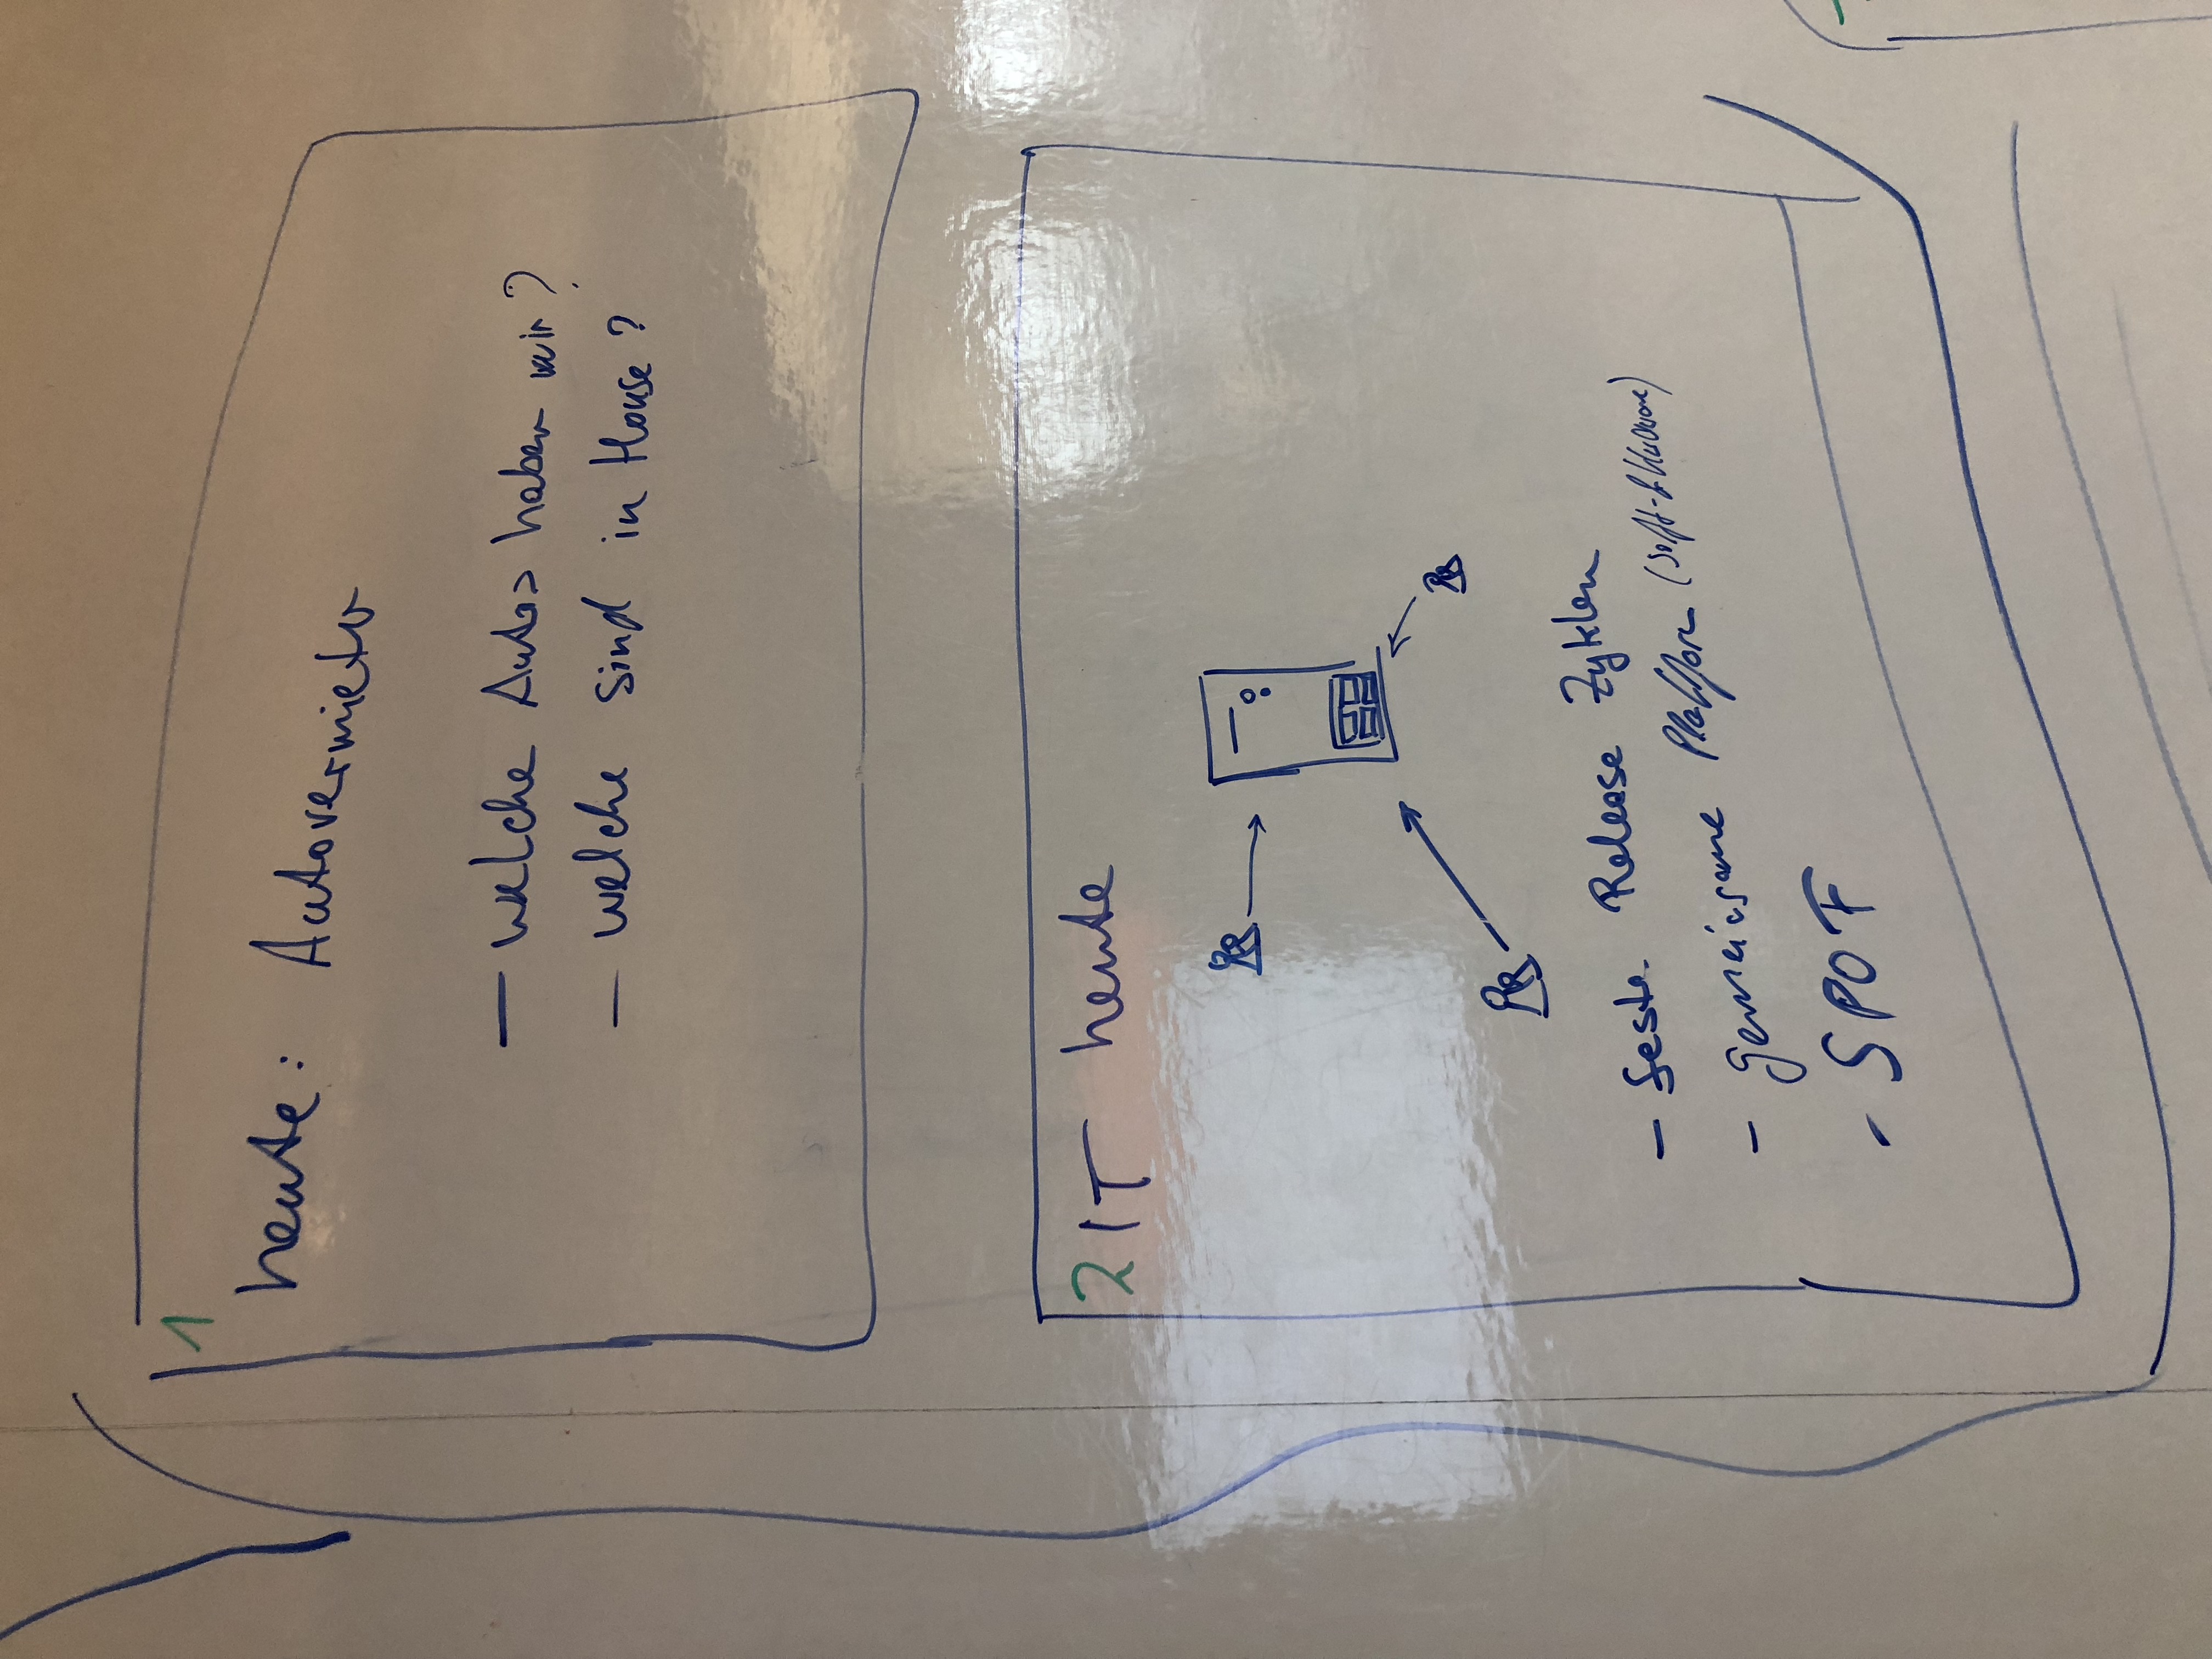 1
heute: Autovermieter
– welche Autos haben wir?
– welche sind in House?
2 IT heute
– feste Release Zyklen
– gemeinsame Plattform (Soft- & Hardware)
- SPOF